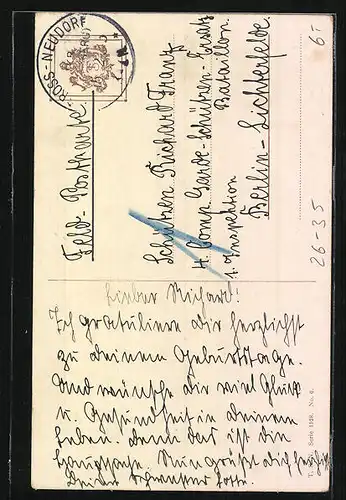 GROSS-NEUDORF
Feld-Postkarte
Schützen Richard Franz
4. Comp Garde-Schützen-Ersatz
Bataillon.
1. Inspektion
Berlin-Lichterfelde.
6.-
26-35
Lieber Richard!
Ich gratuliere dir herzlichst
zu deinem Geburtstage.
Und wünsche dir viel Glück
u. Gesundheit in deinem
Leben. Denn das ist die
Hauptsache. Nun grüßt dich herzlich
Deine Schwester
Serie 1128. No. 6.